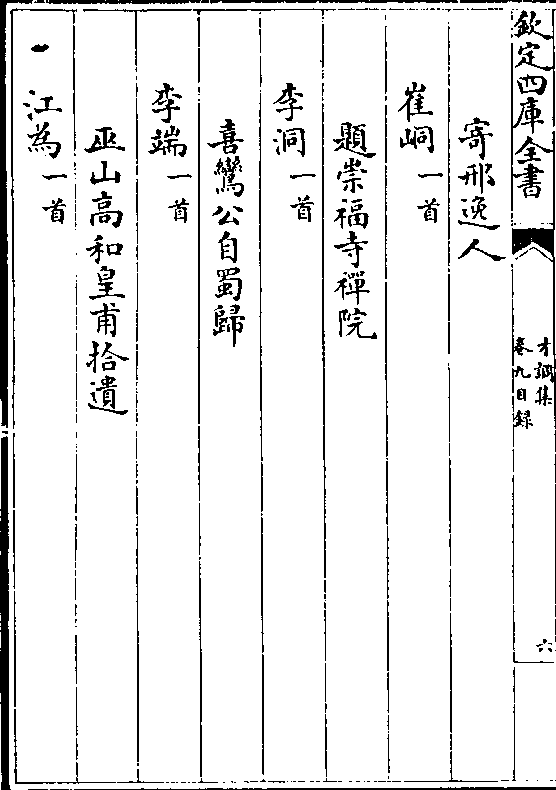 欽定四庫全書
才調集
卷九目錄
六
寄邢逸人
崔峒一首
題崇福寺禪院
李洞一首
喜鸞公自蜀歸
李端一首
巫山高和皇甫拾遺
江為一首